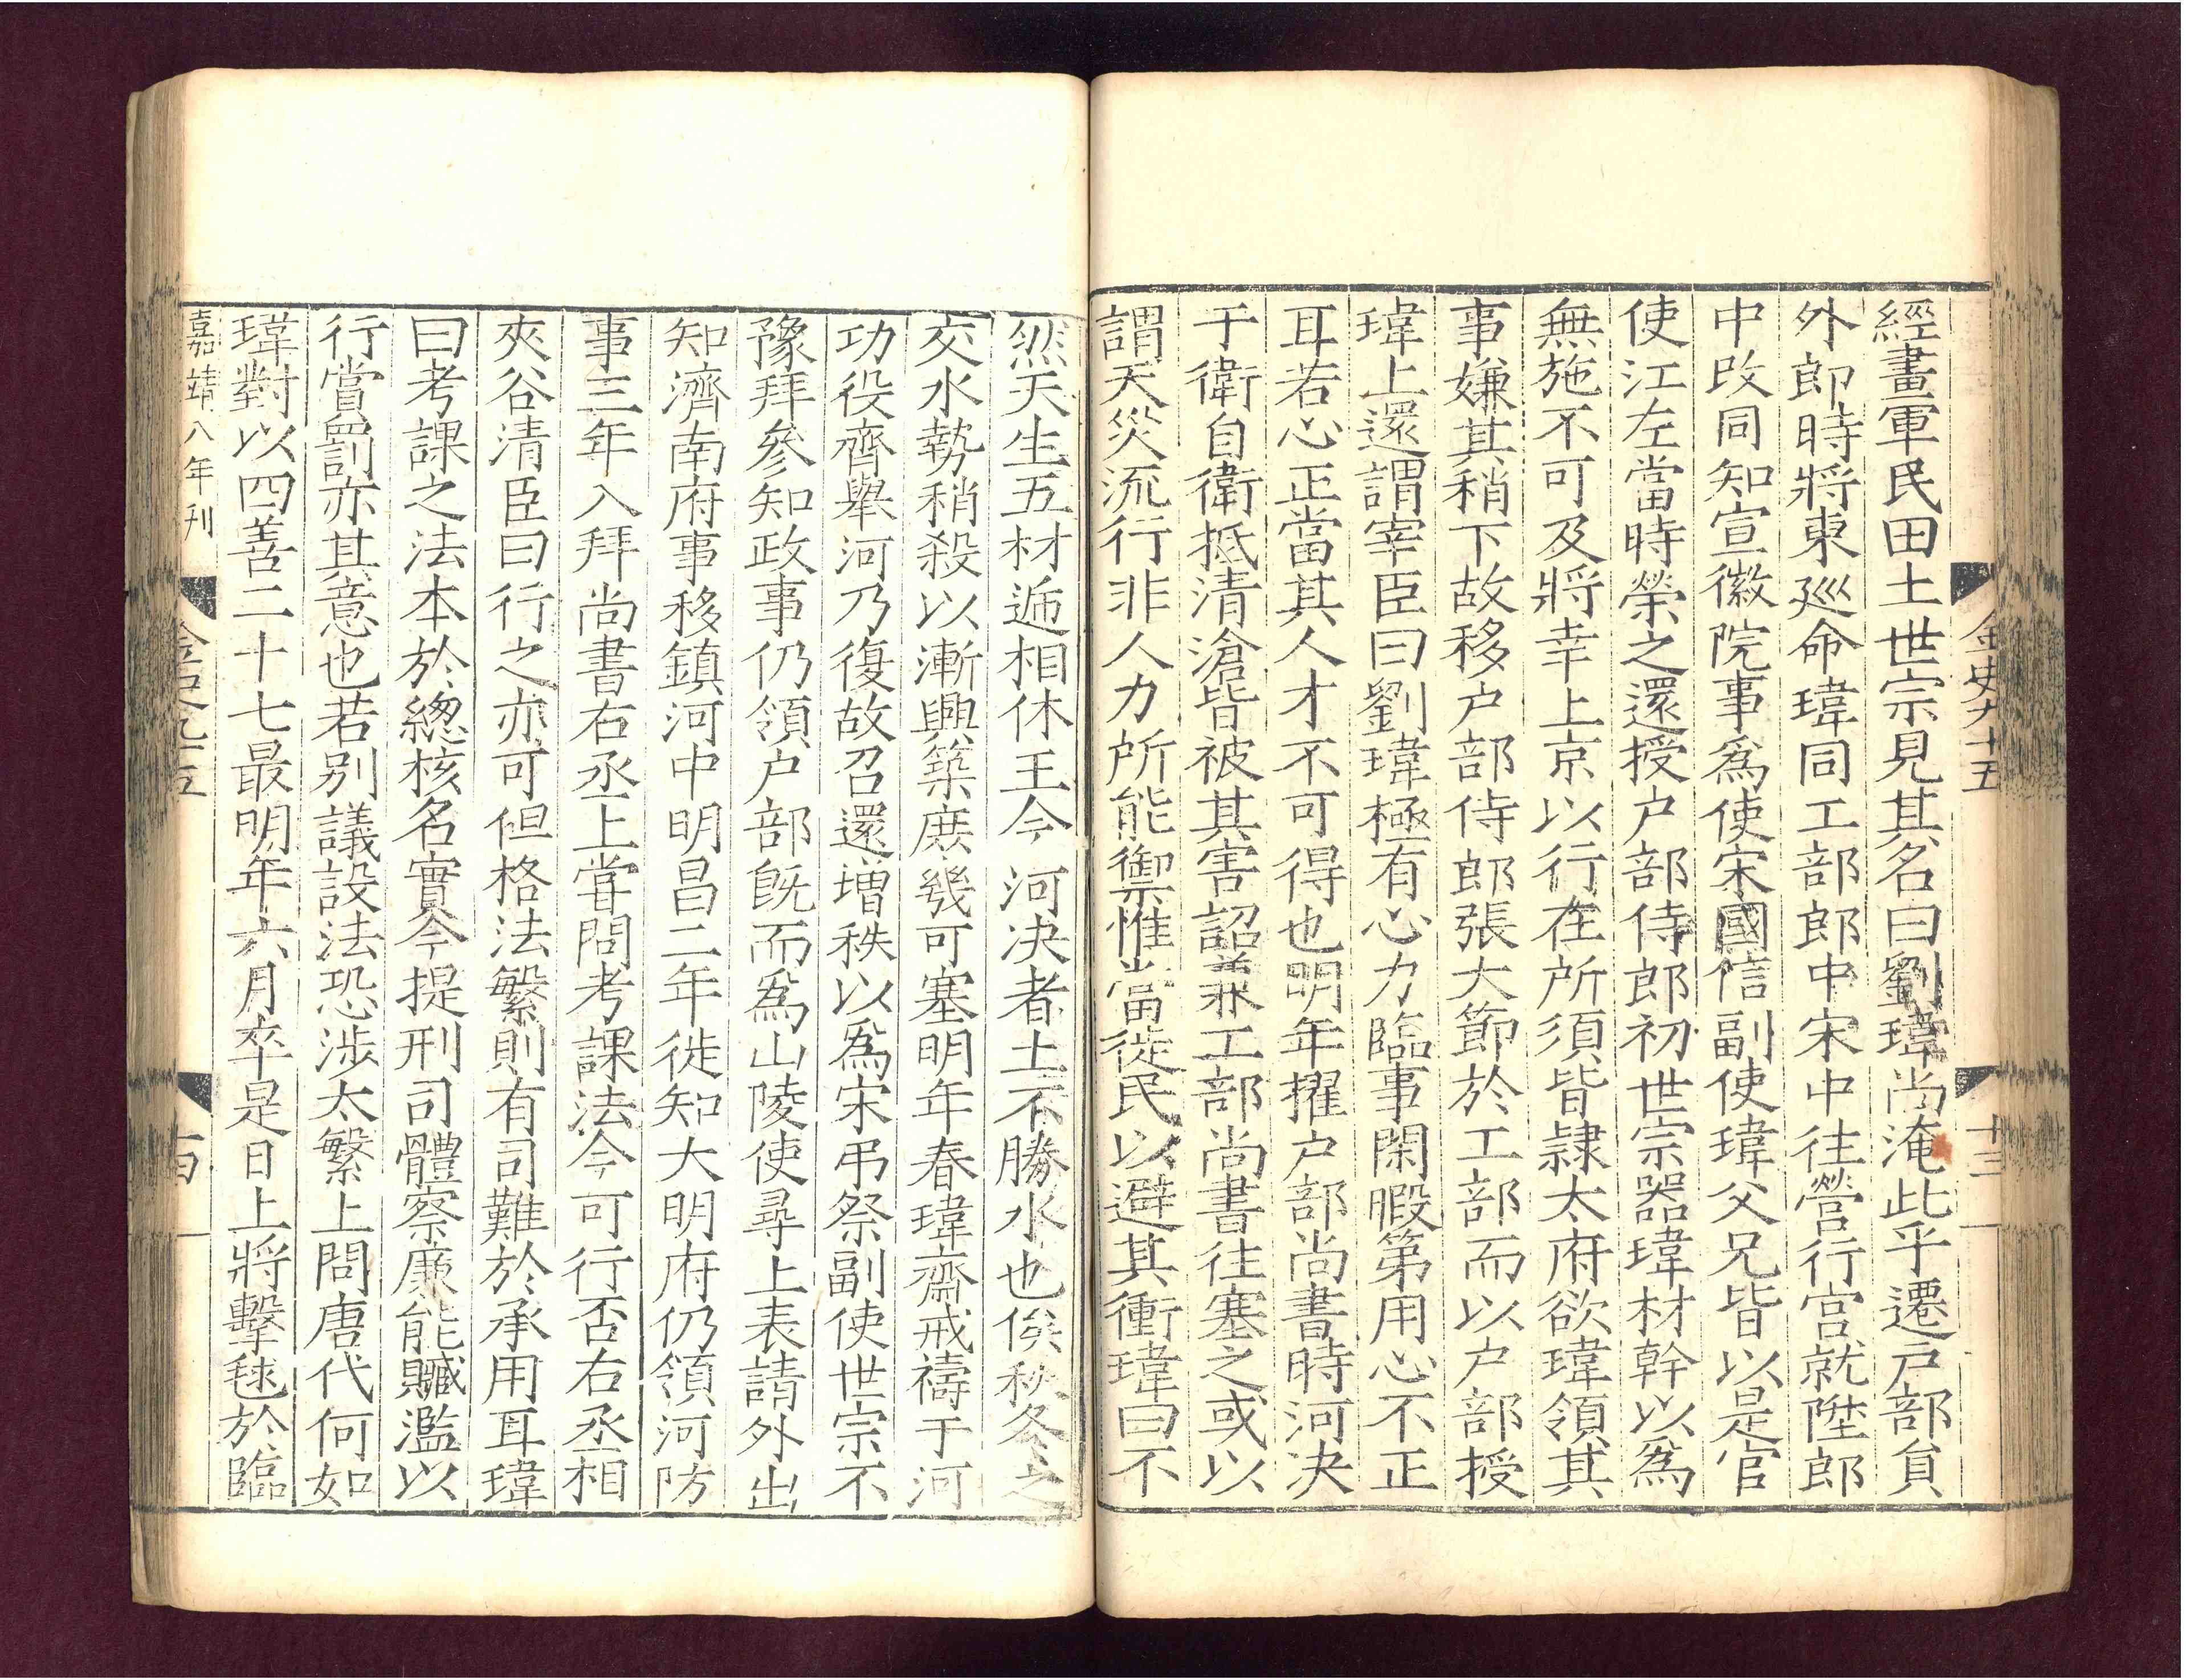 經畫軍民田土世宗見其名曰劉瑋尚淹此乎遷户部貟
外郎時將東廵命瑋同工部郎中宋中往營行宫就陞郎
中改同知宣徽院事爲使宋國信副使瑋父兄皆以是官
使江左當時榮之還授户部侍郎初世宗器瑋材幹以爲
無施不可及將幸上京以行在所須皆隷太府欲瑋領其
事嫌其稍下故移户部侍郎張大節於工部而以户部授
瑋上還謂宰臣曰劉瑋極有心力臨事閑暇第用心不正
耳若心正當其人才不可得也明年擢户部尚書時河决
于衛自衛抵清滄皆被其害詔兼工部尚書往塞之或以
謂天災流行非人力所能禦惟當徙民以避其衝瑋曰不
金史九十五
十三
然天生五材遞相休王今河决者土不勝水也俟秋冬之
交水勢稍殺以漸興築庶幾可塞明年春瑋齋戒禱于河
功役齊舉河乃復故召還増秩以爲宋弔祭副使世宗不
豫拜參知政事仍領户部旣而爲山陵使尋上表請外出
知濟南府事移鎮河中明昌二年徙知大明府仍領河防
事三年入拜尚書右丞上甞問考課法今可行否右丞相
夾谷清臣曰行之亦可但格法繁則有司難於承用耳瑋
曰考課之法本於總核名實今提刑司體察廉能贓濫以
行賞罰亦其意也若别議設法恐涉太繁上問唐代何如
瑋對以四善二十七最明年六月卒是日上將擊毬於臨
嘉靖八年刊
金史九十五
十四